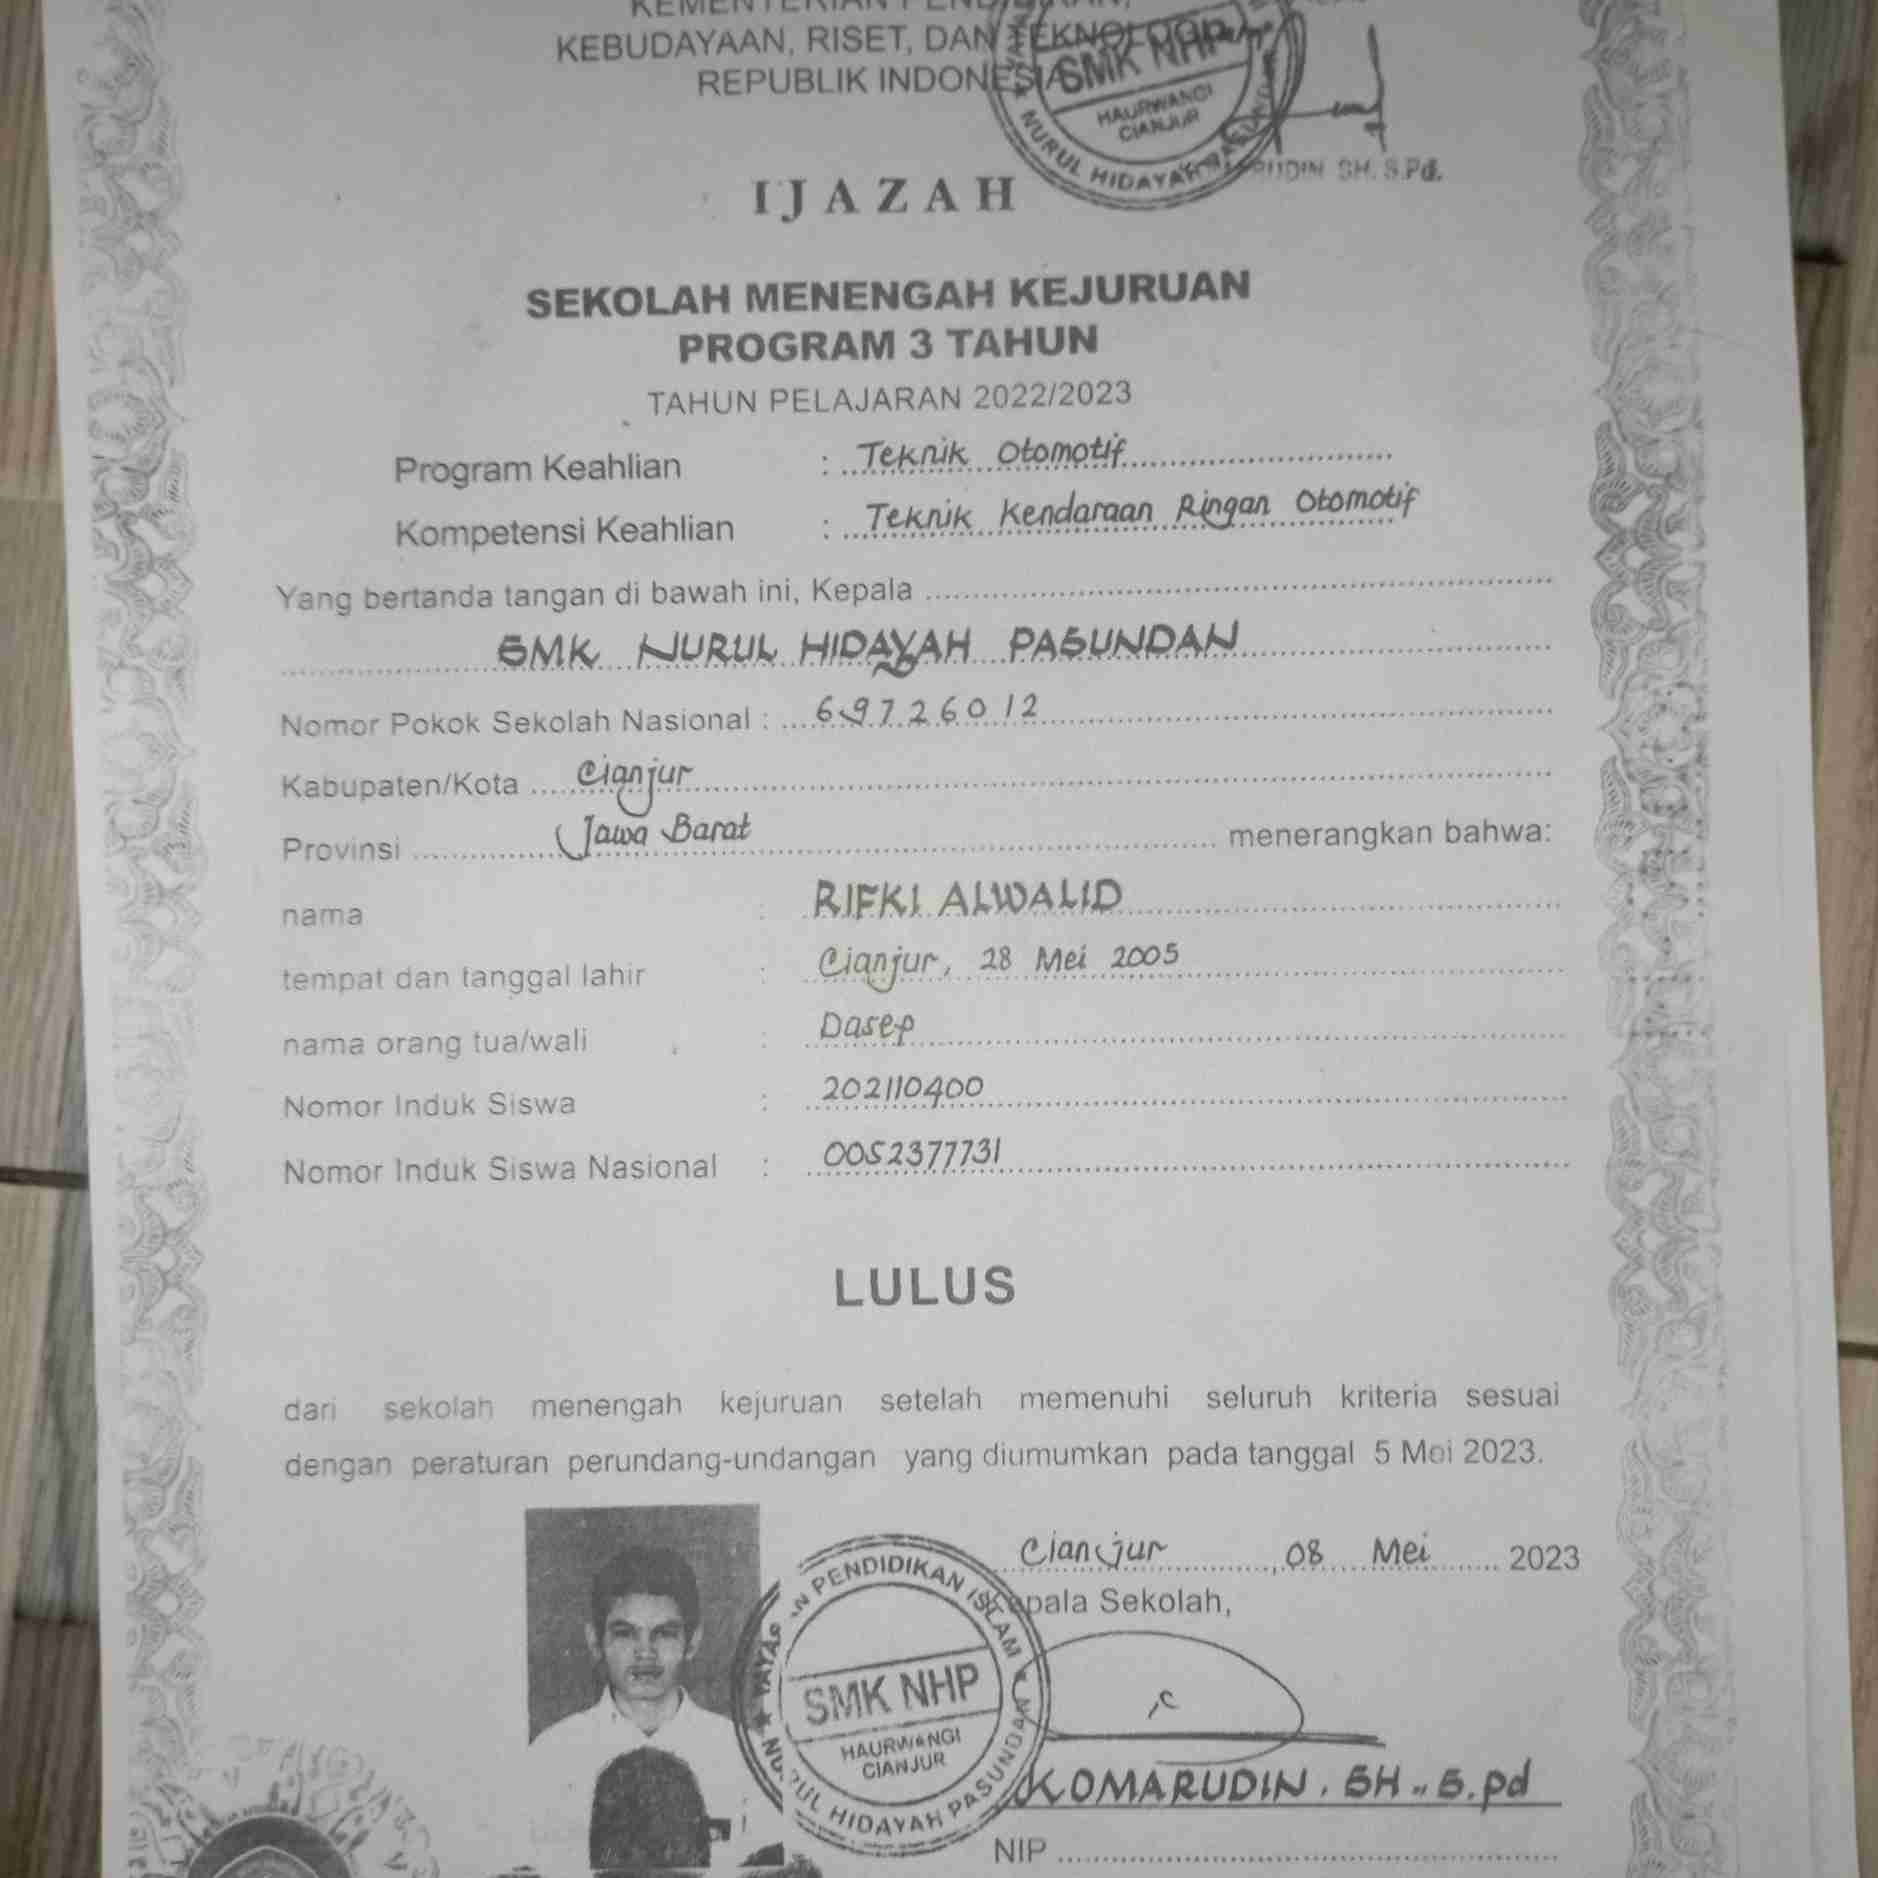 KEMENTERIAN PENDIDIKAN,
KEBUDAYAAN, RISET, DAN TEKNOLOGI
REPUBLIK INDONESIA
SMK NHP
HAURWANGI
CIANJUR
NURUL HIDAYAH PASUNDAN
SH. S.Pd.
IJAZAH
SEKOLAH MENENGAH KEJURUAN
PROGRAM 3 TAHUN
TAHUN PELAJARAN 2022/2023
Program Keahlian : Teknik Otomotif
Kompetensi Keahlian : Teknik Kendaraan Ringan Otomotif
Yang bertanda tangan di bawah ini, Kepala
SMK NURUL HIDAYAH PASUNDAN
Nomor Pokok Sekolah Nasional : 69726012
Kabupaten/Kota Cianjur
Provinsi Jawa Barat menerangkan bahwa:
nama : RIFKI ALWALID
tempat dan tanggal lahir : Cianjur, 28 Mei 2005
nama orang tua/wali : Dasep
Nomor Induk Siswa : 202110400
Nomor Induk Siswa Nasional : 0052377731
LULUS
dari sekolah menengah kejuruan setelah memenuhi seluruh kriteria sesuai
dengan peraturan perundang-undangan yang diumumkan pada tanggal 5 Mei 2023.
Cianjur, 08 Mei 2023
Kepala Sekolah,
YAYASAN PENDIDIKAN ISLAM
SMK NHP
HAURWANGI
CIANJUR
NURUL HIDAYAH PASUNDAN
KOMARUDIN, SH., S.Pd
NIP